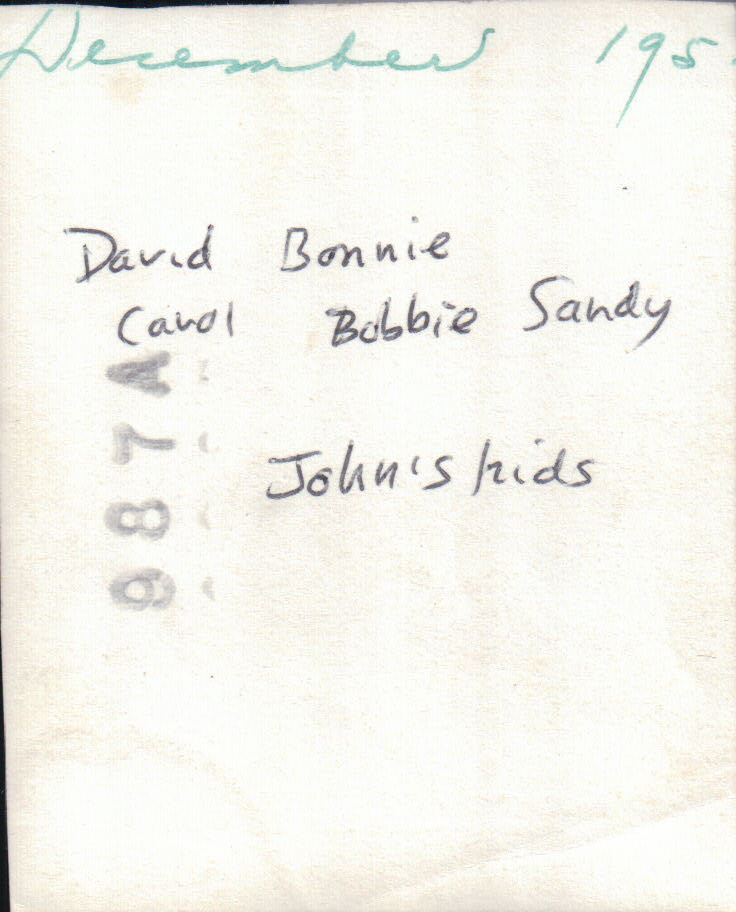 December 195
David Bonnie
Carol Bobbie Sandy
John's kids
987A